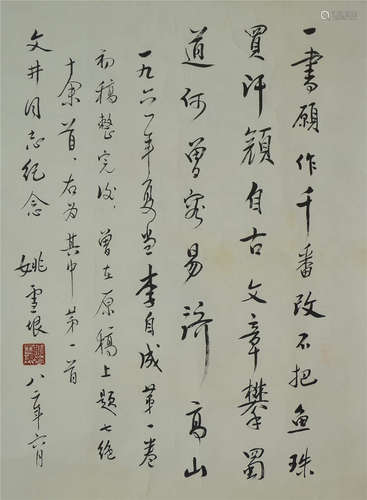 一书愿作千番改不把鱼珠
買汗顔自古文章攀蜀
道何曾容易济高山
一九六一年夏当李自成第一卷
初稿整完後，曾在原稿上题七绝
十余首，右为其中第一首
文井同志纪念
姚雪垠
八一年六月